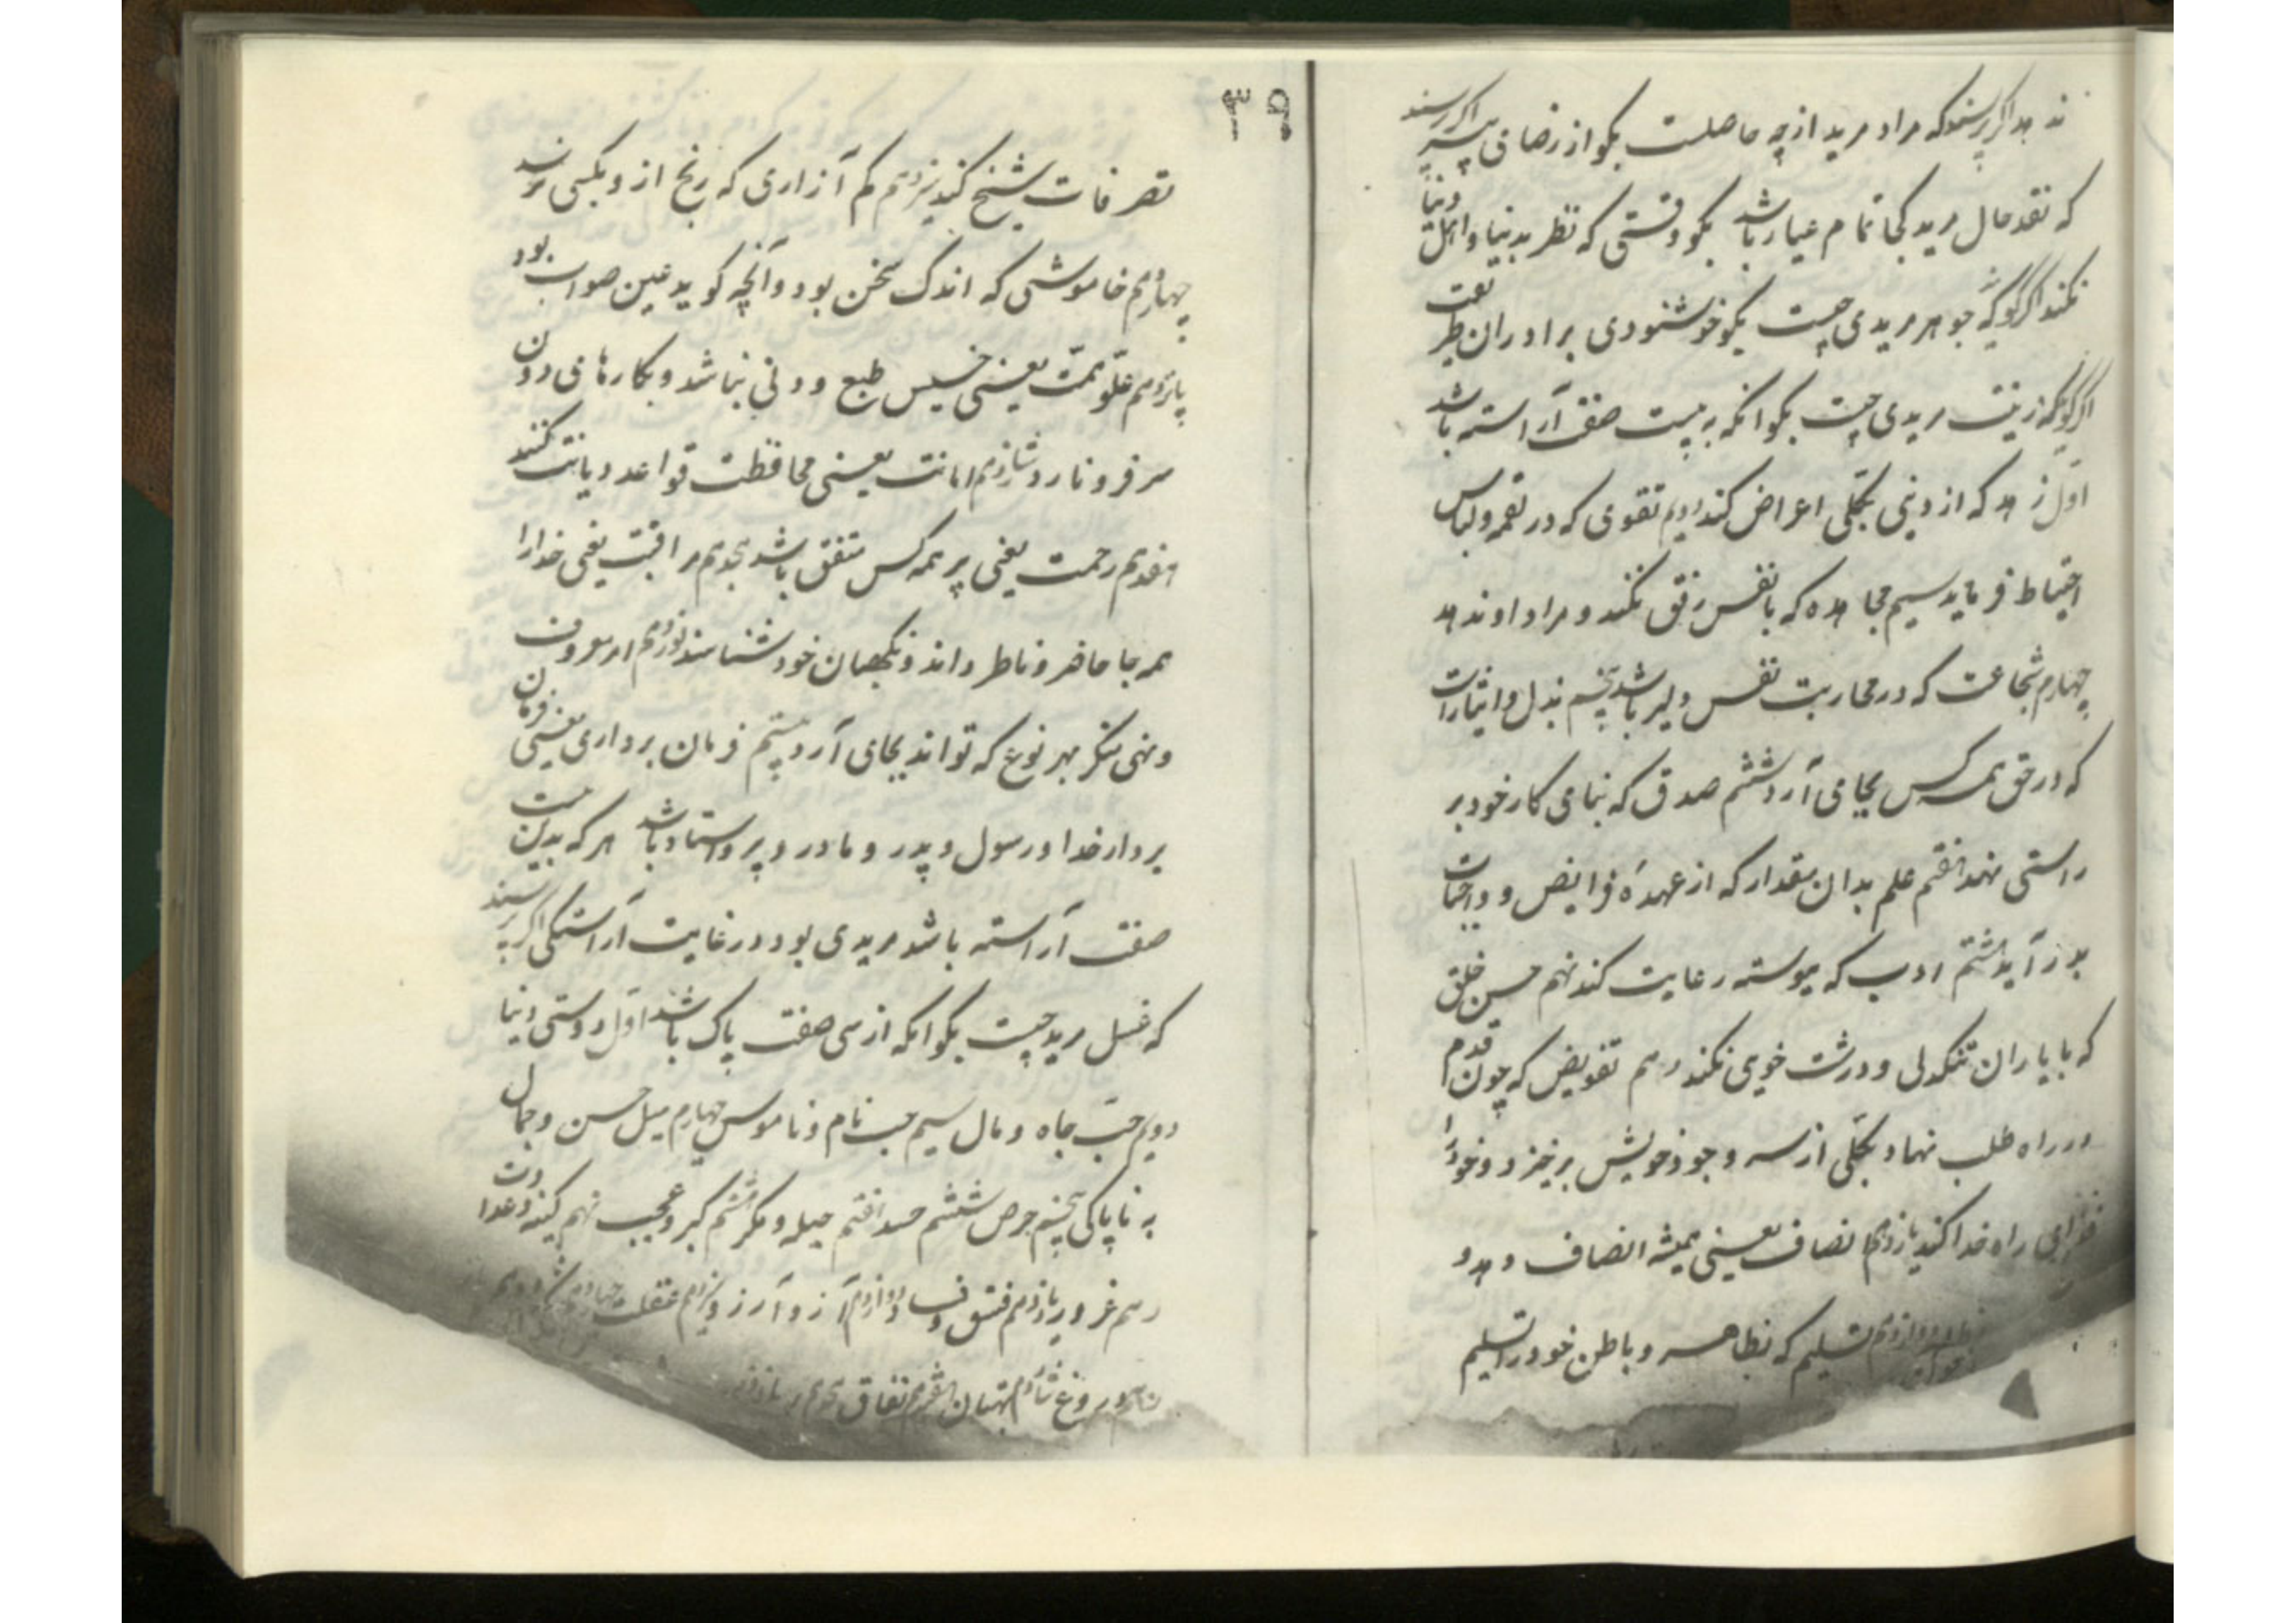 ندهد اگر پرسند که مراد مرید از چه حاصلست بگو از رضای پیر اگر پرسند
که نقد حال مرید کجا تمام عیار باشد بگو وقتی که نظر بدنیا و اهل دنیا
نکند اگر گویند که جوهر مریدی چیست بگو خوشنودی برادران طریقت
اگر گویند که زینت مریدی چیست بگو آنکه به بیست صفت آراسته باشد
اول زهد که از دنیی بکلی اعراض کند دویم تقوی که در لقمه و لباس
احتیاط فرماید سیم مجاهده که با نفس رفق نکند و مراد او ندهد
چهارم شجاعت که در محاربت نفس دلیر باشد پنجم بذل و ایثار است
که در حق همه کس بجای آرد ششم صدق که بنای کار خود بر
راستی نهد هفتم علم بدان مقدار که از عهدهٔ فرایض و واجبات
بدر آید هشتم ادب که پیوسته رعایت کند نهم حسن خلق
که با یاران تنگدلی و درشت خویی نکند دهم تفویض که چون قدم
در راه طلب نهاد بکلی از سر وجود خویش برخیزد و خود را
فدای راه خدا کند یازدهم انصاف یعنی همیشه انصاف دهد و
دوازدهم تسلیم که بظاهر و باطن خود را تسلیم
۳۹
تصرفات شیخ کند سیزدهم کم آزاری که رنج از و بکسی نرسد
چهاردهم خاموشی که اندک سخن بود و آنچه گوید عین صواب بود
پانزدهم علو همت یعنی خسیس طبع و دنی نباشد و بکارهای دون
سر فرو نارد شانزدهم امانت یعنی محافظت قواعد دیانت کنند
هفدهم رحمت یعنی بر همه کس مشفق باشد هجدهم مراقبت یعنی خدا را
همه جا حاضر و ناظر داند و نگهبان خود شناسد نوزدهم امر معروف
و نهی منکر بهر نوع که تواند بجای آرد بیستم فرمان برداری یعنی فرمان
بردار خدا و رسول و پدر و مادر و پیر و استاد باشد هر که بدین بیست
صفت آراسته باشد مریدی بود در غایت آراستگی اگر پرسند
که غسل مرید چیست بگو آنکه از سی صفت پاک باشد اول دوستی دنیا
دویم حب جاه و مال سیم حب نام و ناموس چهارم میل حسن و جمال
به ناپاکی پنجم حرص ششم حسد هفتم حیله و مکر هشتم کبر و عجب نهم کینه و عداوت
دهم غرور یازدهم فسق و فساد دوازدهم آز و آرزو سیزدهم غفلت چهاردهم
دروغ شانزدهم بهتان هفدهم نفاق